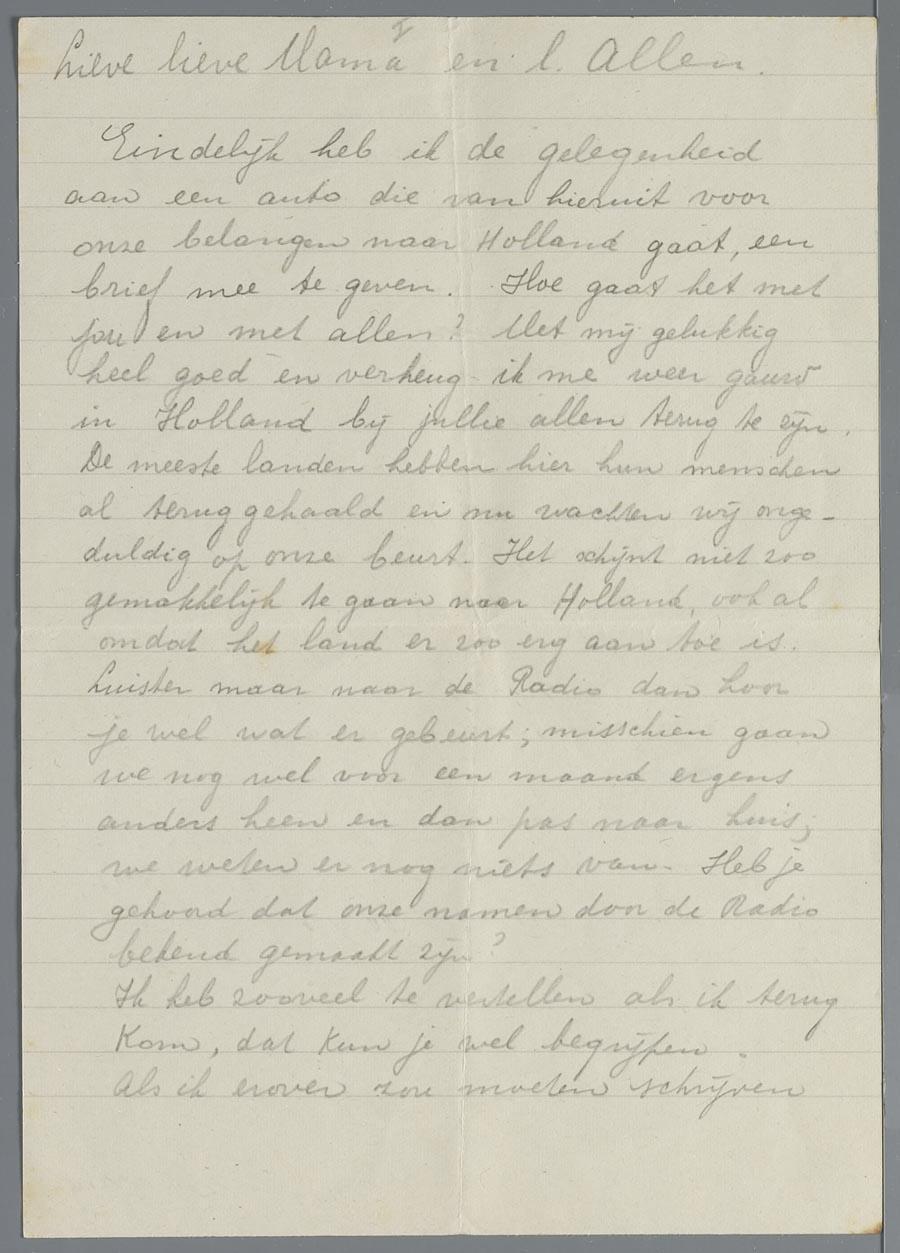 I
Lieve lieve Mama en l. Allen.
Eindelijk heb ik de gelegenheid
aan een auto die van hieruit voor
onze belangen naar Holland gaat, een
brief mee te geven. Hoe gaat het met
jou en met allen? Met mij gelukkig
heel goed en verheug ik me weer gauw
in Holland bij jullie allen terug te zijn.
De meeste landen hebben hier hun menschen
al terug gehaald en nu wachten wij onge-
duldig op onze beurt. Het schijnt niet zoo
gemakkelijk te gaan naar Holland, ook al
omdat het land er zoo erg aan toe is.
Luister maar naar de Radio dan hoor
je wel wat er gebeurt; misschien gaan
we nog wel voor een maand ergens
anders heen en dan pas naar huis;
we weten er nog niets van. Heb je
gehoord dat onze namen door de Radio
bekend gemaakt zijn?
Ik heb zooveel te vertellen als ik terug
Kom, dat Kun je wel begrijpen.
Als ik erover zou moeten schrijven